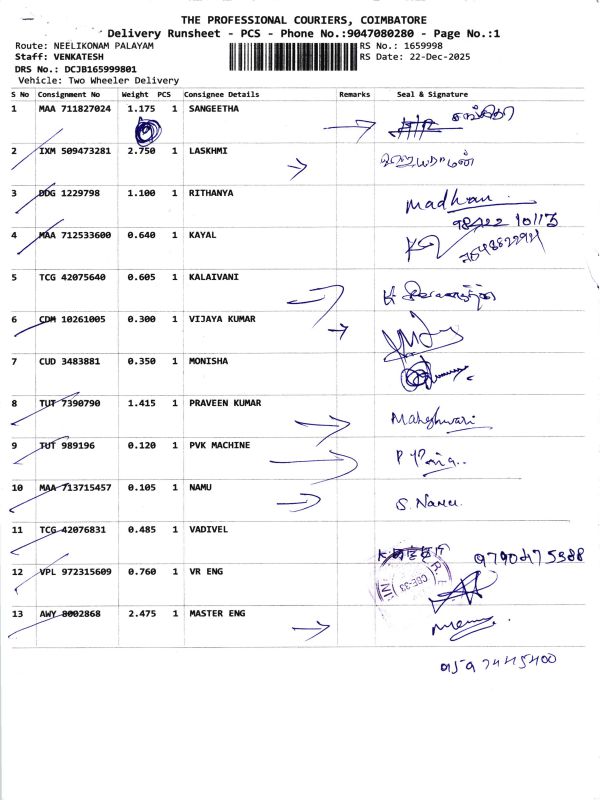 THE PROFESSIONAL COURIERS, COIMBATORE
Delivery Runsheet - PCS - Phone No.:9047080280 - Page No.:1
Route: NEELIKONAM PALAYAM RS No.: 1659998
Staff: VENKATESH RS Date: 22-Dec-2025
DRS No.: DCJB165999801
Vehicle: Two Wheeler Delivery
S No Consignment No Weight PCS Consignee Details Remarks Seal & Signature
1 MAA 711827024 1.175 1 SANGEETHA
2 IXM 509473281 2.750 1 LASKHMI
3 DDG 1229798 1.100 1 RITHANYA Madhan
4 MAA 712533600 0.640 1 KAYAL
5 TCG 42075640 0.605 1 KALAIVANI
6 CDM 10261005 0.300 1 VIJAYA KUMAR
7 CUD 3483881 0.350 1 MONISHA
8 TUT 7390790 1.415 1 PRAVEEN KUMAR Maheshwari
9 TUT 989196 0.120 1 PVK MACHINE
10 MAA 713715457 0.105 1 NAMU S. Namu.
11 TCG 42076831 0.485 1 VADIVEL 9790475388
12 VPL 972315609 0.760 1 VR ENG
13 AWY 8002868 2.475 1 MASTER ENG
9597445400